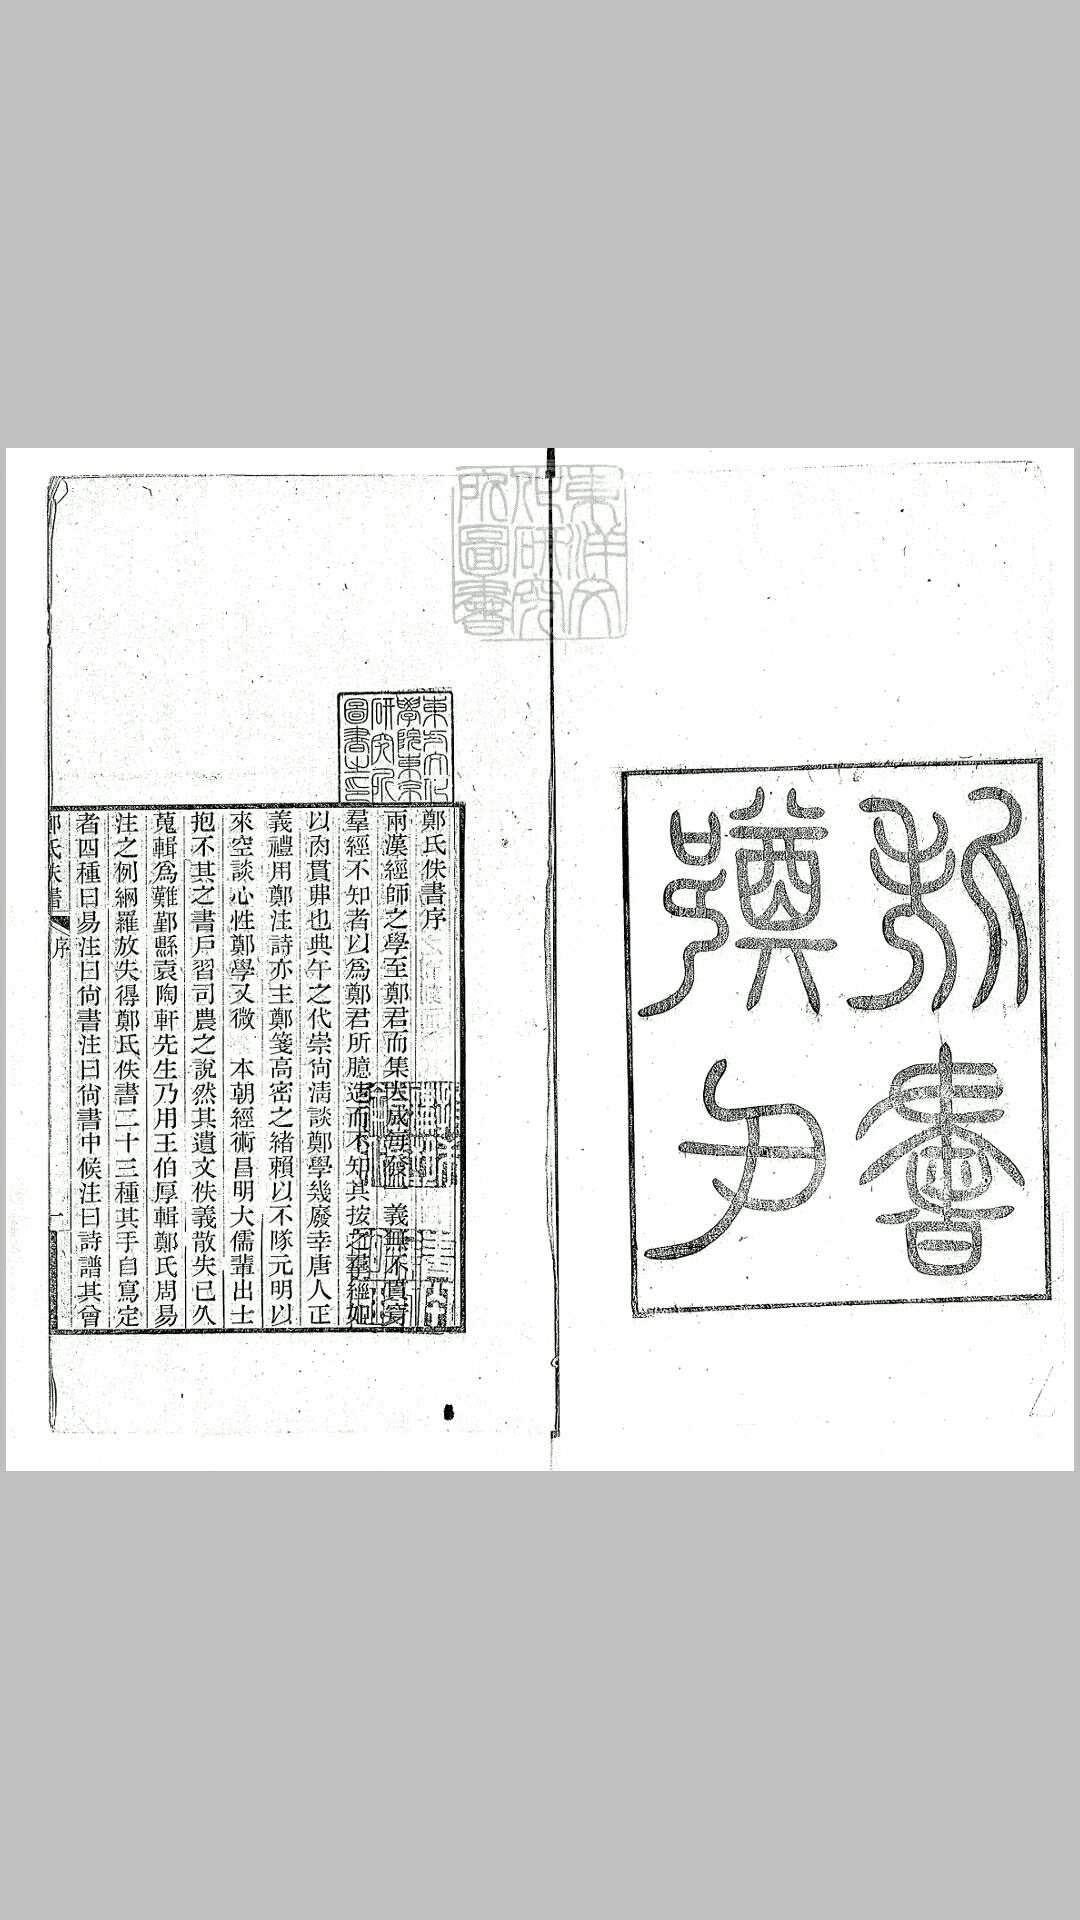 鄭氏
佚書
東方文化
學院東京
研究所
圖書之印
鄭氏佚書序
兩漢經師之學至鄭君而集大成海發一義無不貫穿
羣經不知者以爲鄭君所臆造而不知其按之羣經如
以肉貫丳也典午之代崇尙清談鄭學幾廢幸唐人正
義禮用鄭注詩亦主鄭箋高密之緒賴以不隊元明以
來空談心性鄭學又微　本朝經術昌明大儒輩出士
抱不其之書戶習司農之說然其遺文佚義散失已久
蒐輯爲難鄞縣袁陶軒先生乃用王伯厚輯鄭氏周易
注之例網羅放失得鄭氏佚書二十三種其手自寫定
者四種曰易注曰尙書注曰尙書中候注曰詩譜其曾
鄭氏佚書　序　一